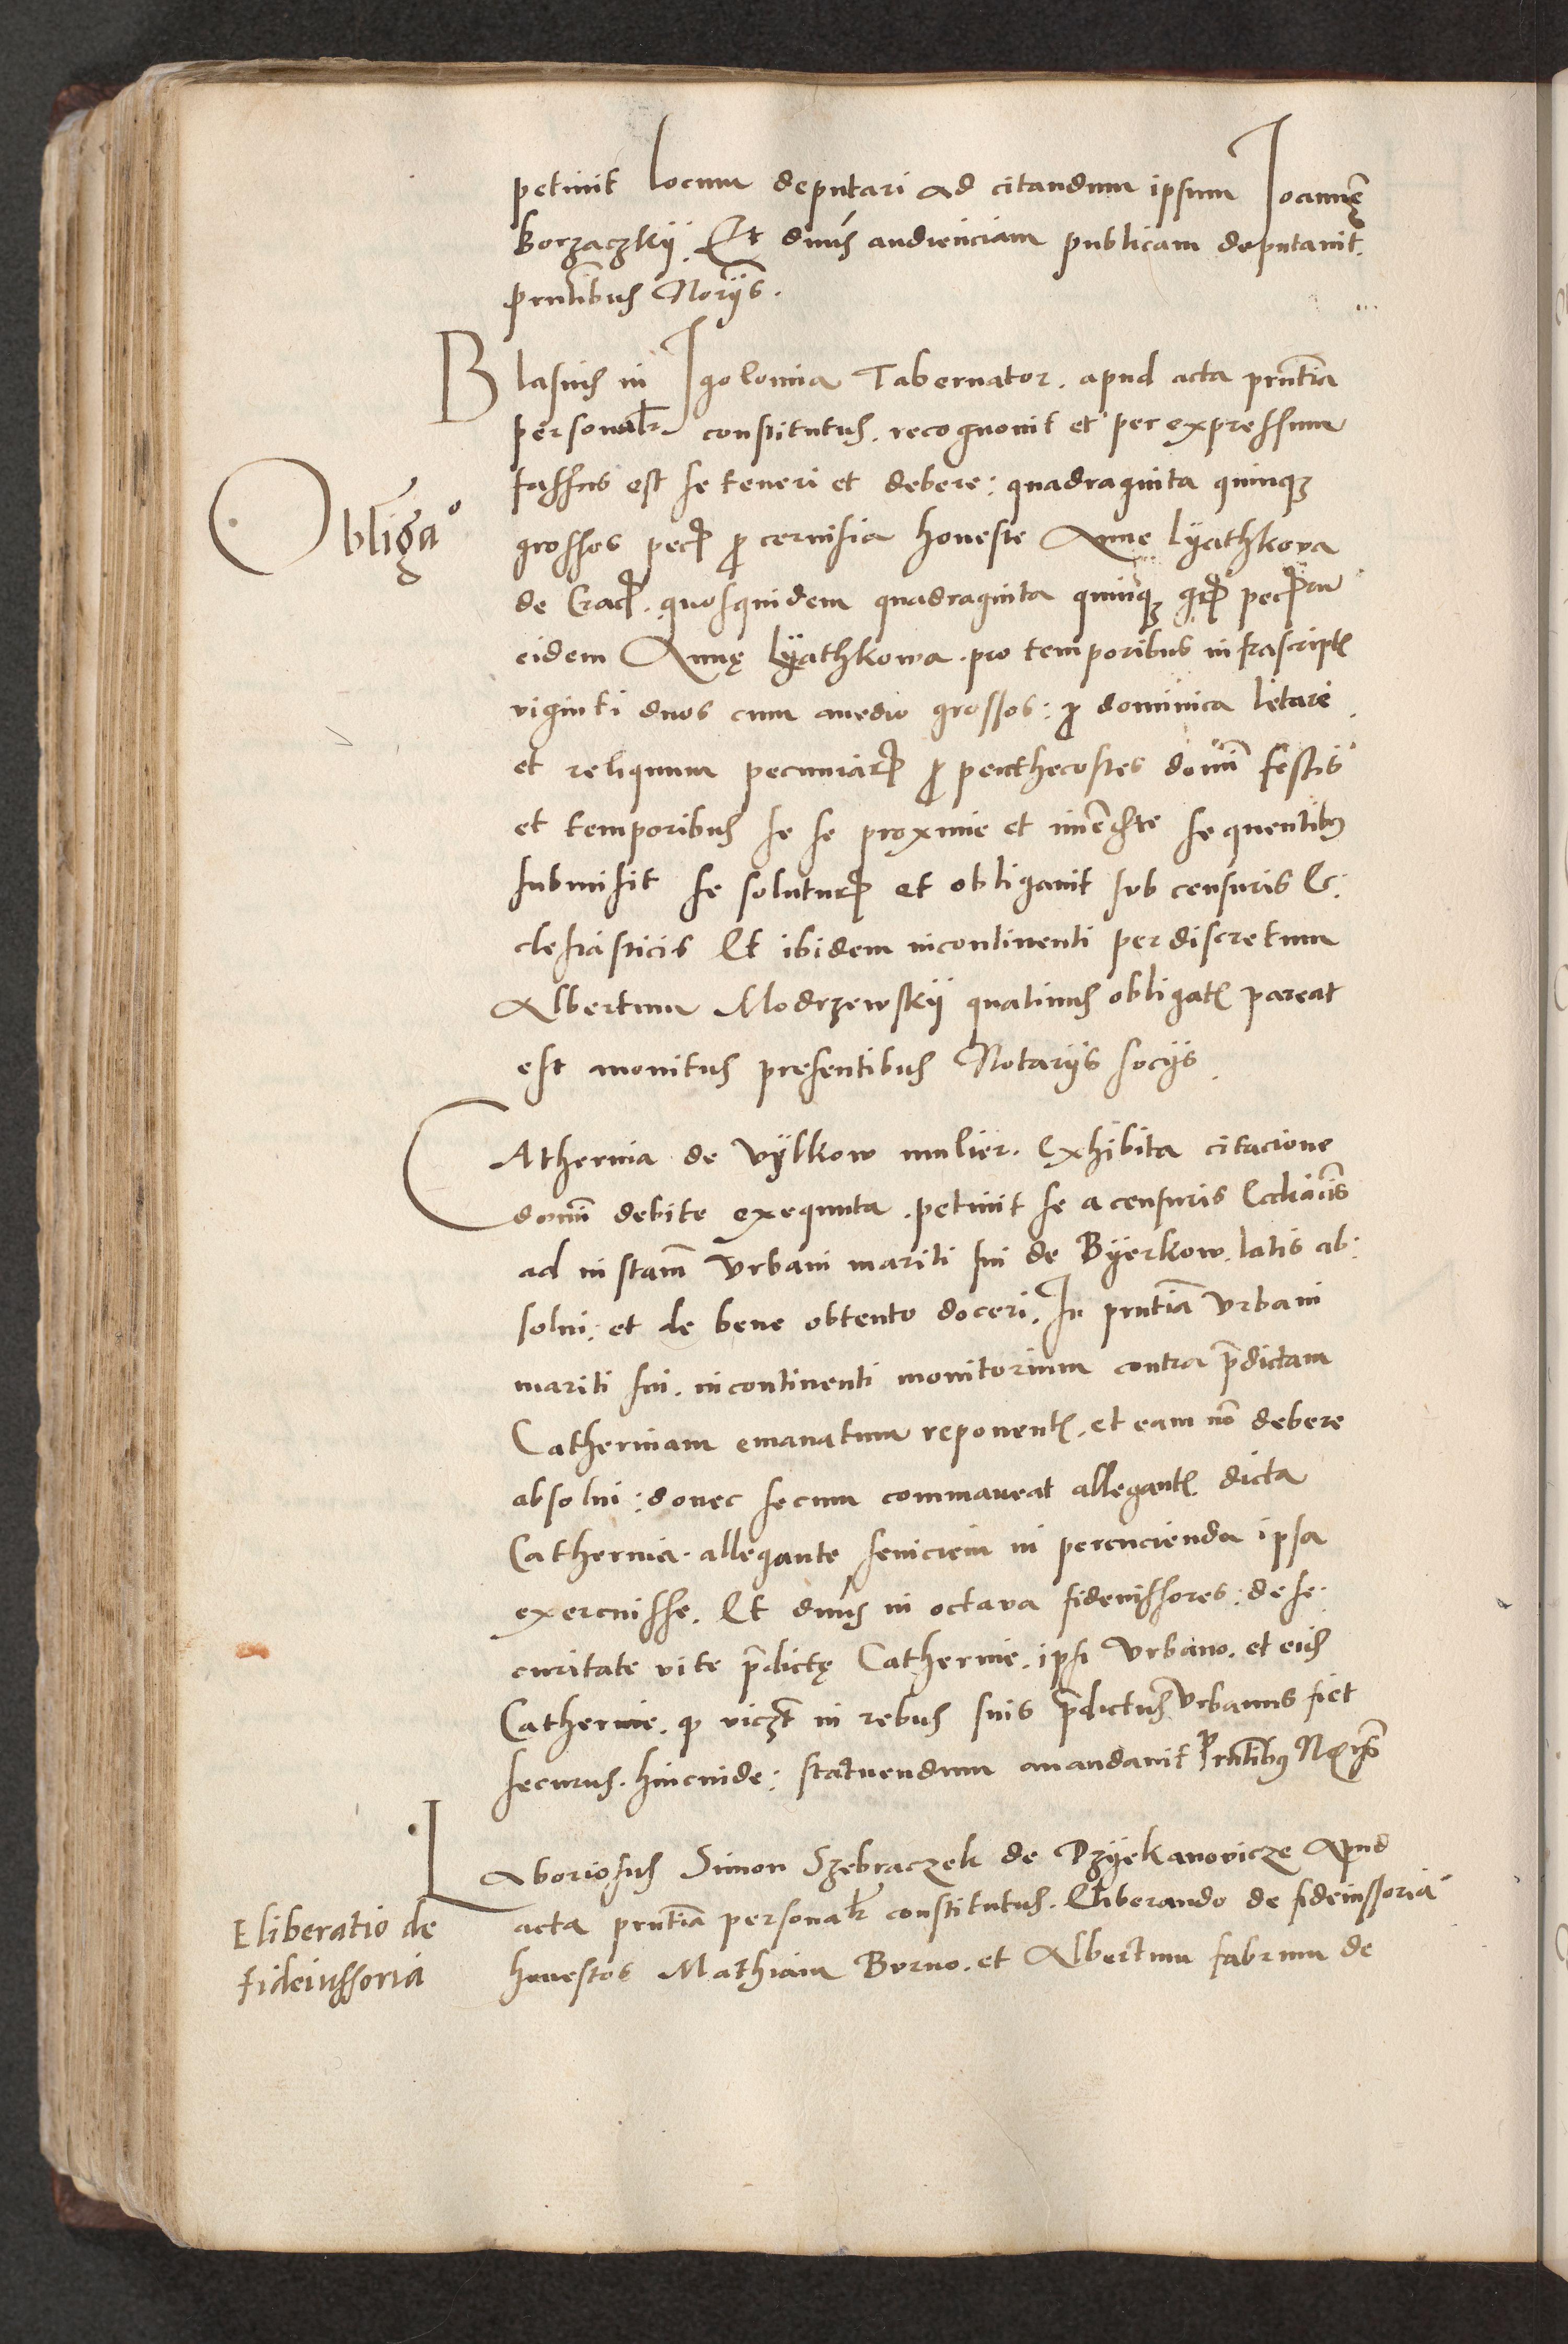 petiuit locum deputari ad citandum ipsum Joannē
Borzaczkÿ. Et dnūs audienciam publicam deputauit.
prñtibus Norÿs.
Blasius in Jgolomia Tabernator. apud acta prñtia
personalr̄ constitutus. recognouit et per expressum
fassus est se teneri et debere: quadraginta quinqꝫ
Obligaº
grossos pecꝝ ꝓ ceruisia honeste Anne Lÿathkova
de Cracꝝ. quosquidem quadraginta quinqꝫ gꝝ pecꝝ
eidem Annę Lÿathkowa. pro temporibus infrascriptꝭ
viginti duos cum medio grossos: ꝓ dominica letare
et reliquum pecuniarꝝ ꝓ penthecostes domī festis
et temporibus se se proxime et imēdte sequentibꝰ
submisit se soluturꝝ et obligauit sub censuris Ec:
clesiasticis Et ibidem incontinenti per discretum
Albertum Modrzewskÿ quatinus obligatꝭ pareat
est monitus presentibus Notarÿs socÿs.
CAtherina de Vÿlkow mulier. Exhibita citacione
domī debite exequuta. petiuit se a censuris Eccliacīs
ad instam̄ Vrbani mariti sui de Bÿerkow. latis ab:
solui: et de bene obtento doceri. In prñtia Vrbani
mariti sui. incontinenti monitorium contra p̄dictam
Catherinam emanatum reponentꝭ. et eam nō debere
absolui: donec secum commaneat allegantꝭ dicta
Catherina. allegante seuiciem in percucienda ipsa
exercuisse. Et dnūs in octaua fideiussores: de se:
curitate vite p̄dictę Catherine. ipsi Vrbano. et eid
Catherine. ꝙ viczt in rebus suis p̄dictus Vrbanus fiet
securus. hincinde: statuendum mandauit Prñtibꝰ Norÿs
LAboriosus Simon Szebraczek de Dzÿekanovicze Apud
acta prñtia personalr̄ constitutus. Eliberando de fideiussoria
Eliberatio de
fideiussoria
honestos Mathiam Borno. et Albertum fabrum de